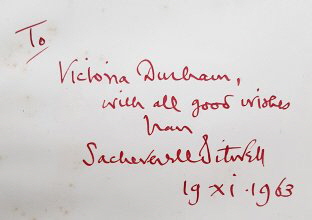 To
Victoria Durham,
with all good wishes
from
Sacheverell Sitwell
19 xi . 1963